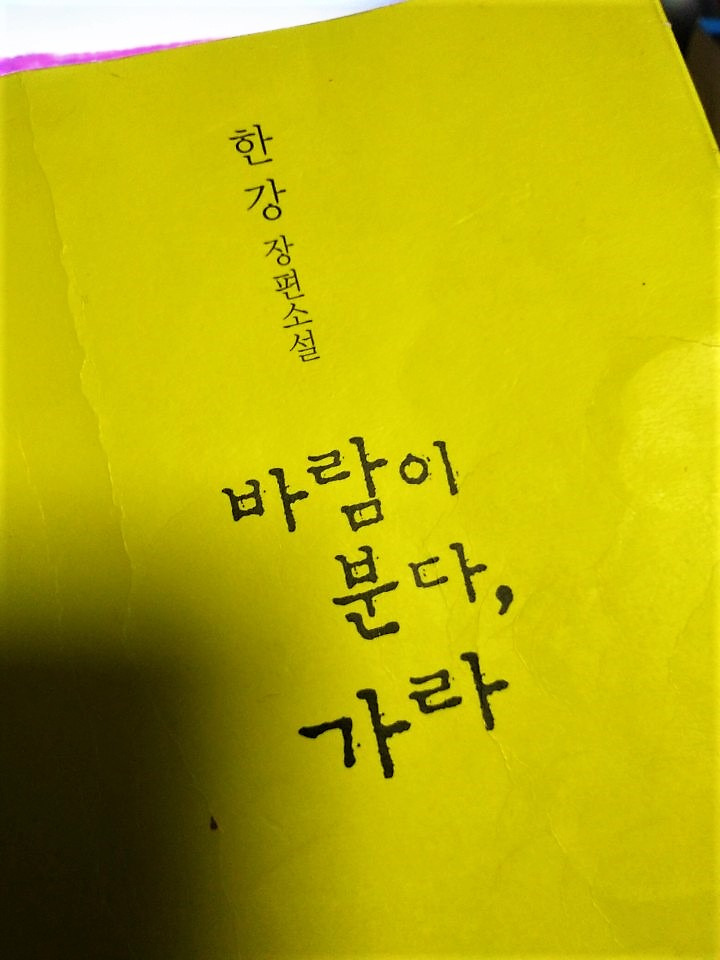 한강 장편소설
바람이
분다,
가라